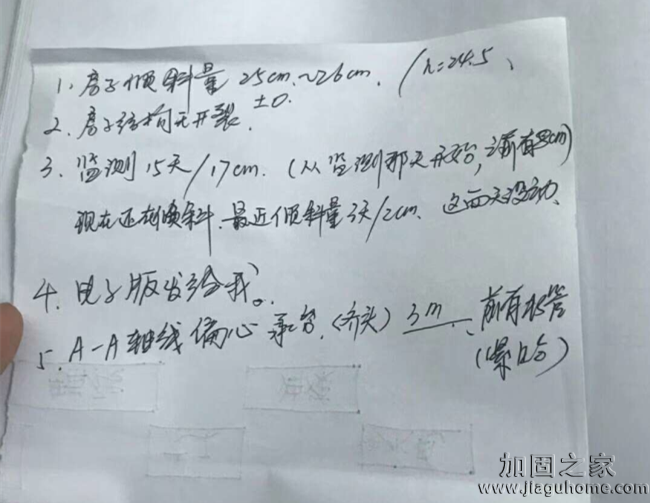 1、房子倾斜量 25cm~26cm. /h=24.5、
2、房子结构无开裂. ±0.
3、监测15天/17cm.(从监测那天开始,之前有8cm)
现在还在倾斜.最近倾斜量3天/2cm.这两天没动、
4、电子版发给我。
5、A-A轴线偏心承台.(齐头) 3m 、前有水管
(爆
加固之家
www.jiaguhome.com